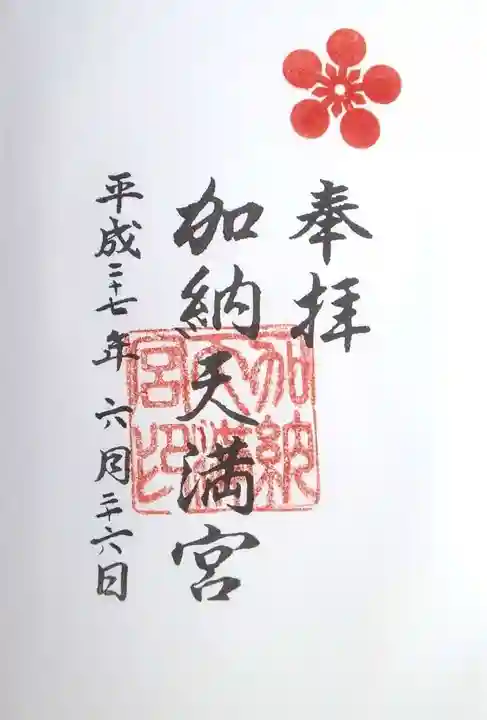 奉拝
加納天満宮
平成二十七年 六月二十六日
加納
天満
宮印